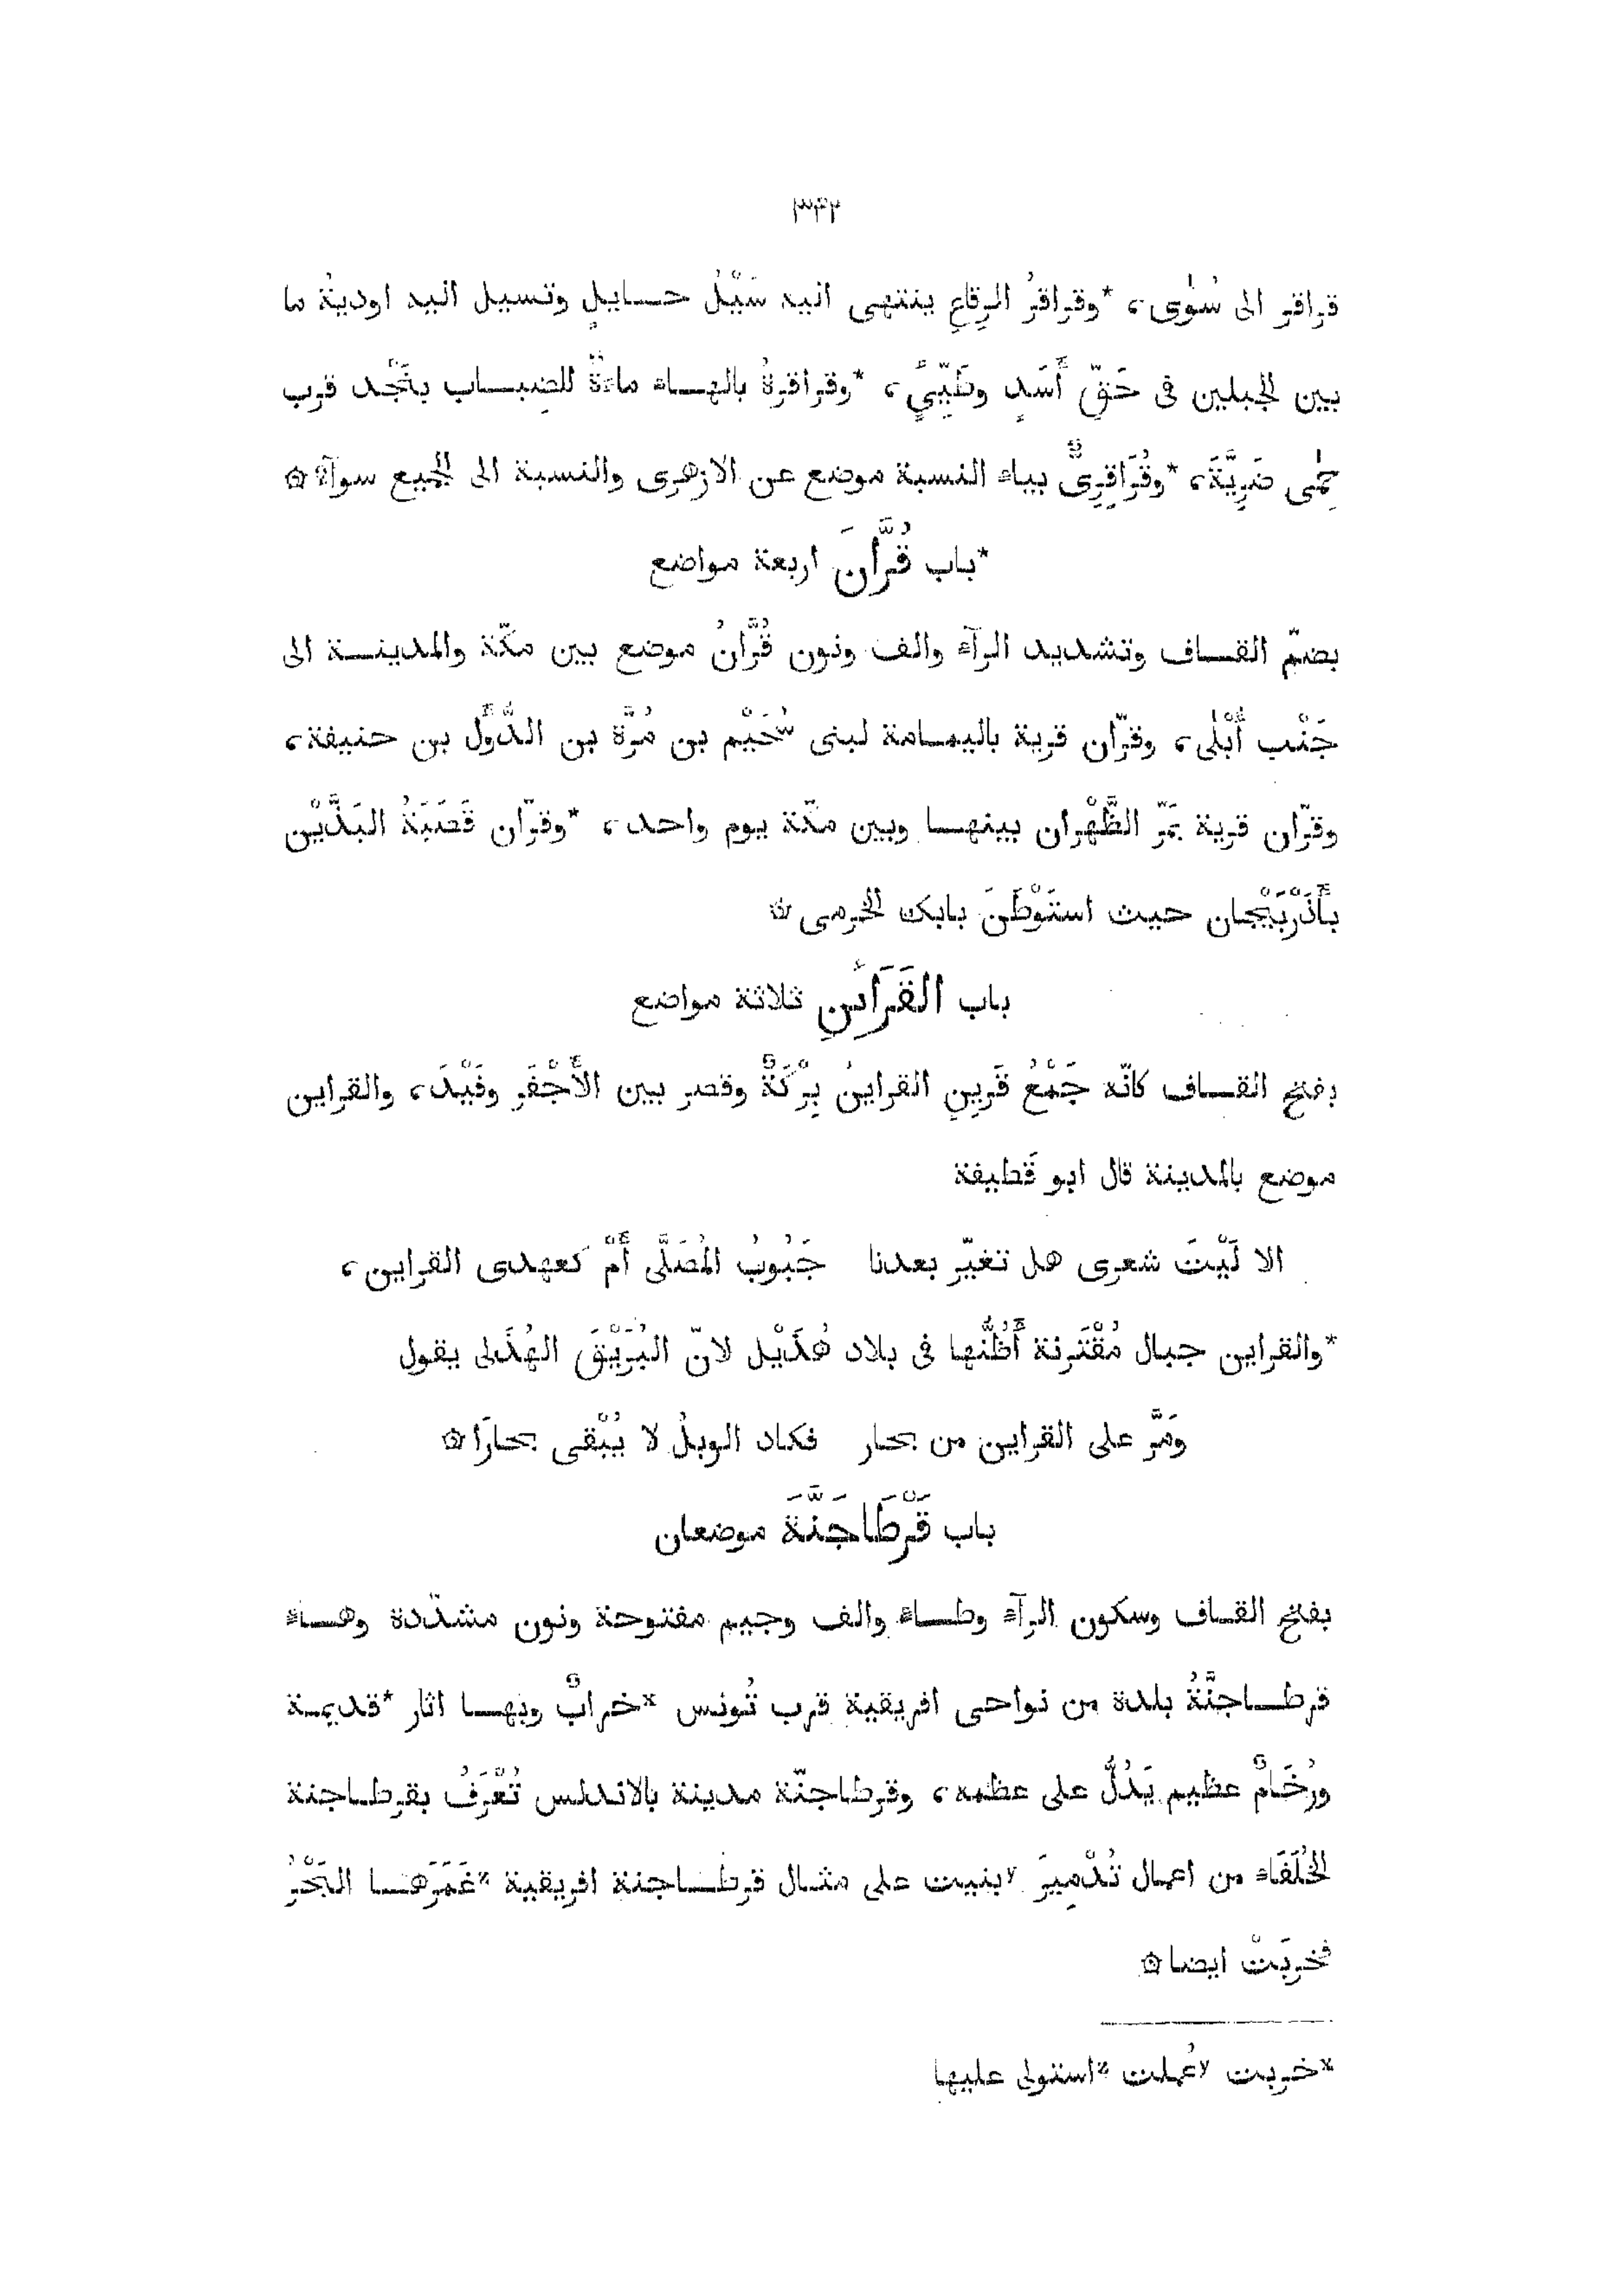 ٣٤٢
قراقر الى سُوٰى، *وقراقرُ الرِقاعِ ينتهى اليه سَيْلُ حايلٍ وتسيل اليه اودية ما
بين الجبلين فى حَقّ أَسَدٍ وطَيِّىءٍ، *وقراقرةُ بالهاء ماءةٌ للضِباب بنَجْد قرب
حِمٰى ضَرِيَّةَ، *وقُرَاقِرِىٌّ بياء النسبة موضع عن الازهرى والنسبة الى الجميع سوآءٌ ۞
*باب قُرَّانَ اربعة مواضع
بضمّ القاف وتشديد الرآء والف ونون قُرَّانُ موضع بين مكّة والمدينة الى
جَنْب أُبْلٰى، وقرّان قرية باليمامة لبنى سُحَيْم بن مُرَّة بن الدُّوَّل بن حنيفة،
وقرّان قرية بمَرّ الظَّهْران بينها وبين مكّة يوم واحد، *وقرّان قَصَبَةُ البَذَّيْن
بأَذْرْبَيْجان حيث استَوْطَنَ بابك الخرمى ۞
باب القَرَائِنِ ثلاثة مواضع
بفتح القاف كانّه جَمْعُ قَرِينٍ القراينُ بِرْكَةٌ وقصر بين الأَجْفَر وفَيْدَ، والقراين
موضع بالمدينة قال ابو قَطيفة
الا لَيْتَ شعرى هل تغيّر بعدنا جَبُوبُ المُصَلَّى أَمْ كعهدى القراين،
*والقراين جبال مُقْتَرنة أَظُنُّها فى بلاد هُذَيْل لانّ البُرَيْقَ الهُذَلى يقول
ومَرَّ على القراين من بحار فكاد الوبلُ لا يُبْقى بحارَا ۞
باب قَرْطَاجَنَّةَ موضعان
بفتح القاف وسكون الرآء وطاء والف وجيم مفتوحة ونون مشدّدة وهاء
قرطاجنَّةُ بلدة من نواحى افريقية قرب تُونس ˣخرابٌ وبها اثار *قديمة
ورُخَامٌ عظيم يَدُلُّ على عظمه، وقرطاجنّة مدينة بالاندلس تُعْرَفُ بقرطاجنة
الخُلَفَاء من اعمال تُدْمِيرَ ʸبنيت على مثال قرطاجنة افريقية ᶻغَمَرَها البَحْرُ
فخربَتْ ايضا ۞
ˣخربت ʸعُملت ᶻاستولى عليها